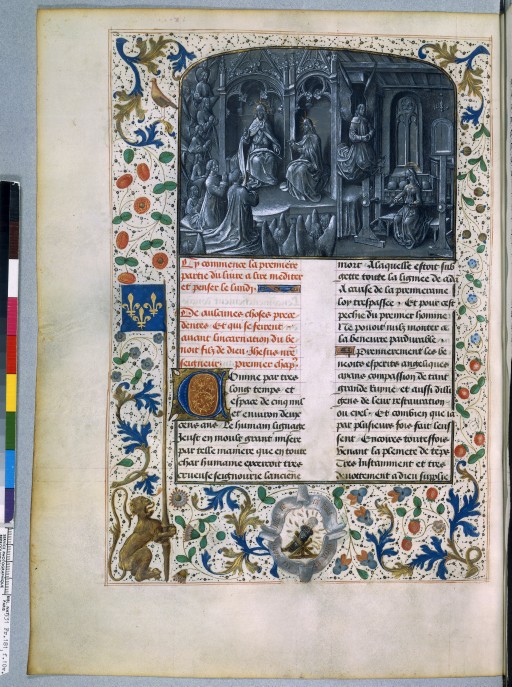 Cy commence la premiere
partie du liure a lire mediter
et penser le lundi.
De aulcunes choses prece
dentes. Et qui se firent
auant lincarnation du be
noit filz de dieu Jhesus nre
seigneur. premier chap.
Comme par tres
long temps et
espace de cinq mil
et environ deux
cens ans le humain lignage
geust en moult grant misere
par telle maniere que en toute
char humaine exercoit tres
crueuse seignourie lancienne
mort. A laquelle estoit sub
gette toute la lignee de ada
A cause de la premeraine
loy trespassee. Et pour cest
pechie du premier homme
Ne pouoit nulz monter a
la beneurte pardurable.
Premierement les be
noits esperits angeliques
aians compassion de tant
grande ruyne et aussi dili
gens de leur restauration
ou ciel. Et combien que ia
par plusieurs fois fait leuss
sent. Encores touteffois
venant la pleniere de teps
Tres instamment et tres
deuottement a dieu suplie